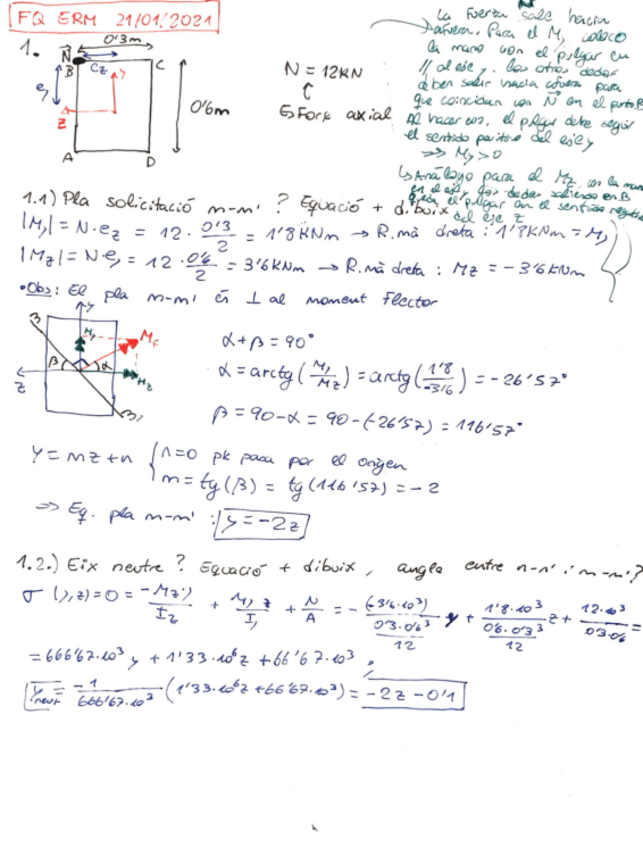 FQ ERM 21/01/2021
1.
0'3m
N
B
C
ez
y
ey
z
A
D
0'6m
N = 12KN
↳ Força axial
La fuerza sale hacia
afuera. Para el My coloco
la mano con el pulgar en
// al eje y. Los otros dedos
deben salir hacia afuera para
que coincidan con N en el punto B
Al hacer eso, el pulgar debe seguir
el sentido positivo del eje y
=> My > 0
↳ Análogo para el Mz, con la mano
en el eje z, los dedos saliendo en B
queda el pulgar en el sentido negativo
del eje z
1.1) Pla solicitació m-m' ? Equació + dibuix
|My| = N·ez = 12 · 0'3/2 = 1'8KNm → R. mà dreta : 1'8KNm = My
|Mz| = N·ey = 12 · 0'6/2 = 3'6KNm → R. mà dreta : Mz = -3'6KNm
• Obs: El pla m-m' és ⊥ al moment flector
y
My
MF
β
α
z
Mz
α + β = 90°
α = arctg(My/Mz) = arctg(1'8/-3'6) = -26'57°
β = 90-α = 90-(-26'57) = 116'57°
y = mz + n { n=0 pk pasa por el origen
m = tg(β) = tg(116'57) = -2
=> Eq. pla m-m' : y = -2z
1.2.) Eix neutre ? Equació + dibuix, angle entre n-n' i m-m'?
σ(y,z)=0 = -Mz·y/Iz + My·z/Iy + N/A = - (-3'6·10³)/(0'3·0'6³/12) y + 1'8·10³/(0'6·0'3³/12) z + 12·10³/0'3·0'6 =
= 666'67·10³ y + 1'33·10⁶ z + 66'67·10³ ;
yneut = -1/666'67·10³ (1'33·10⁶z + 66'67·10³) = -2z - 0'1